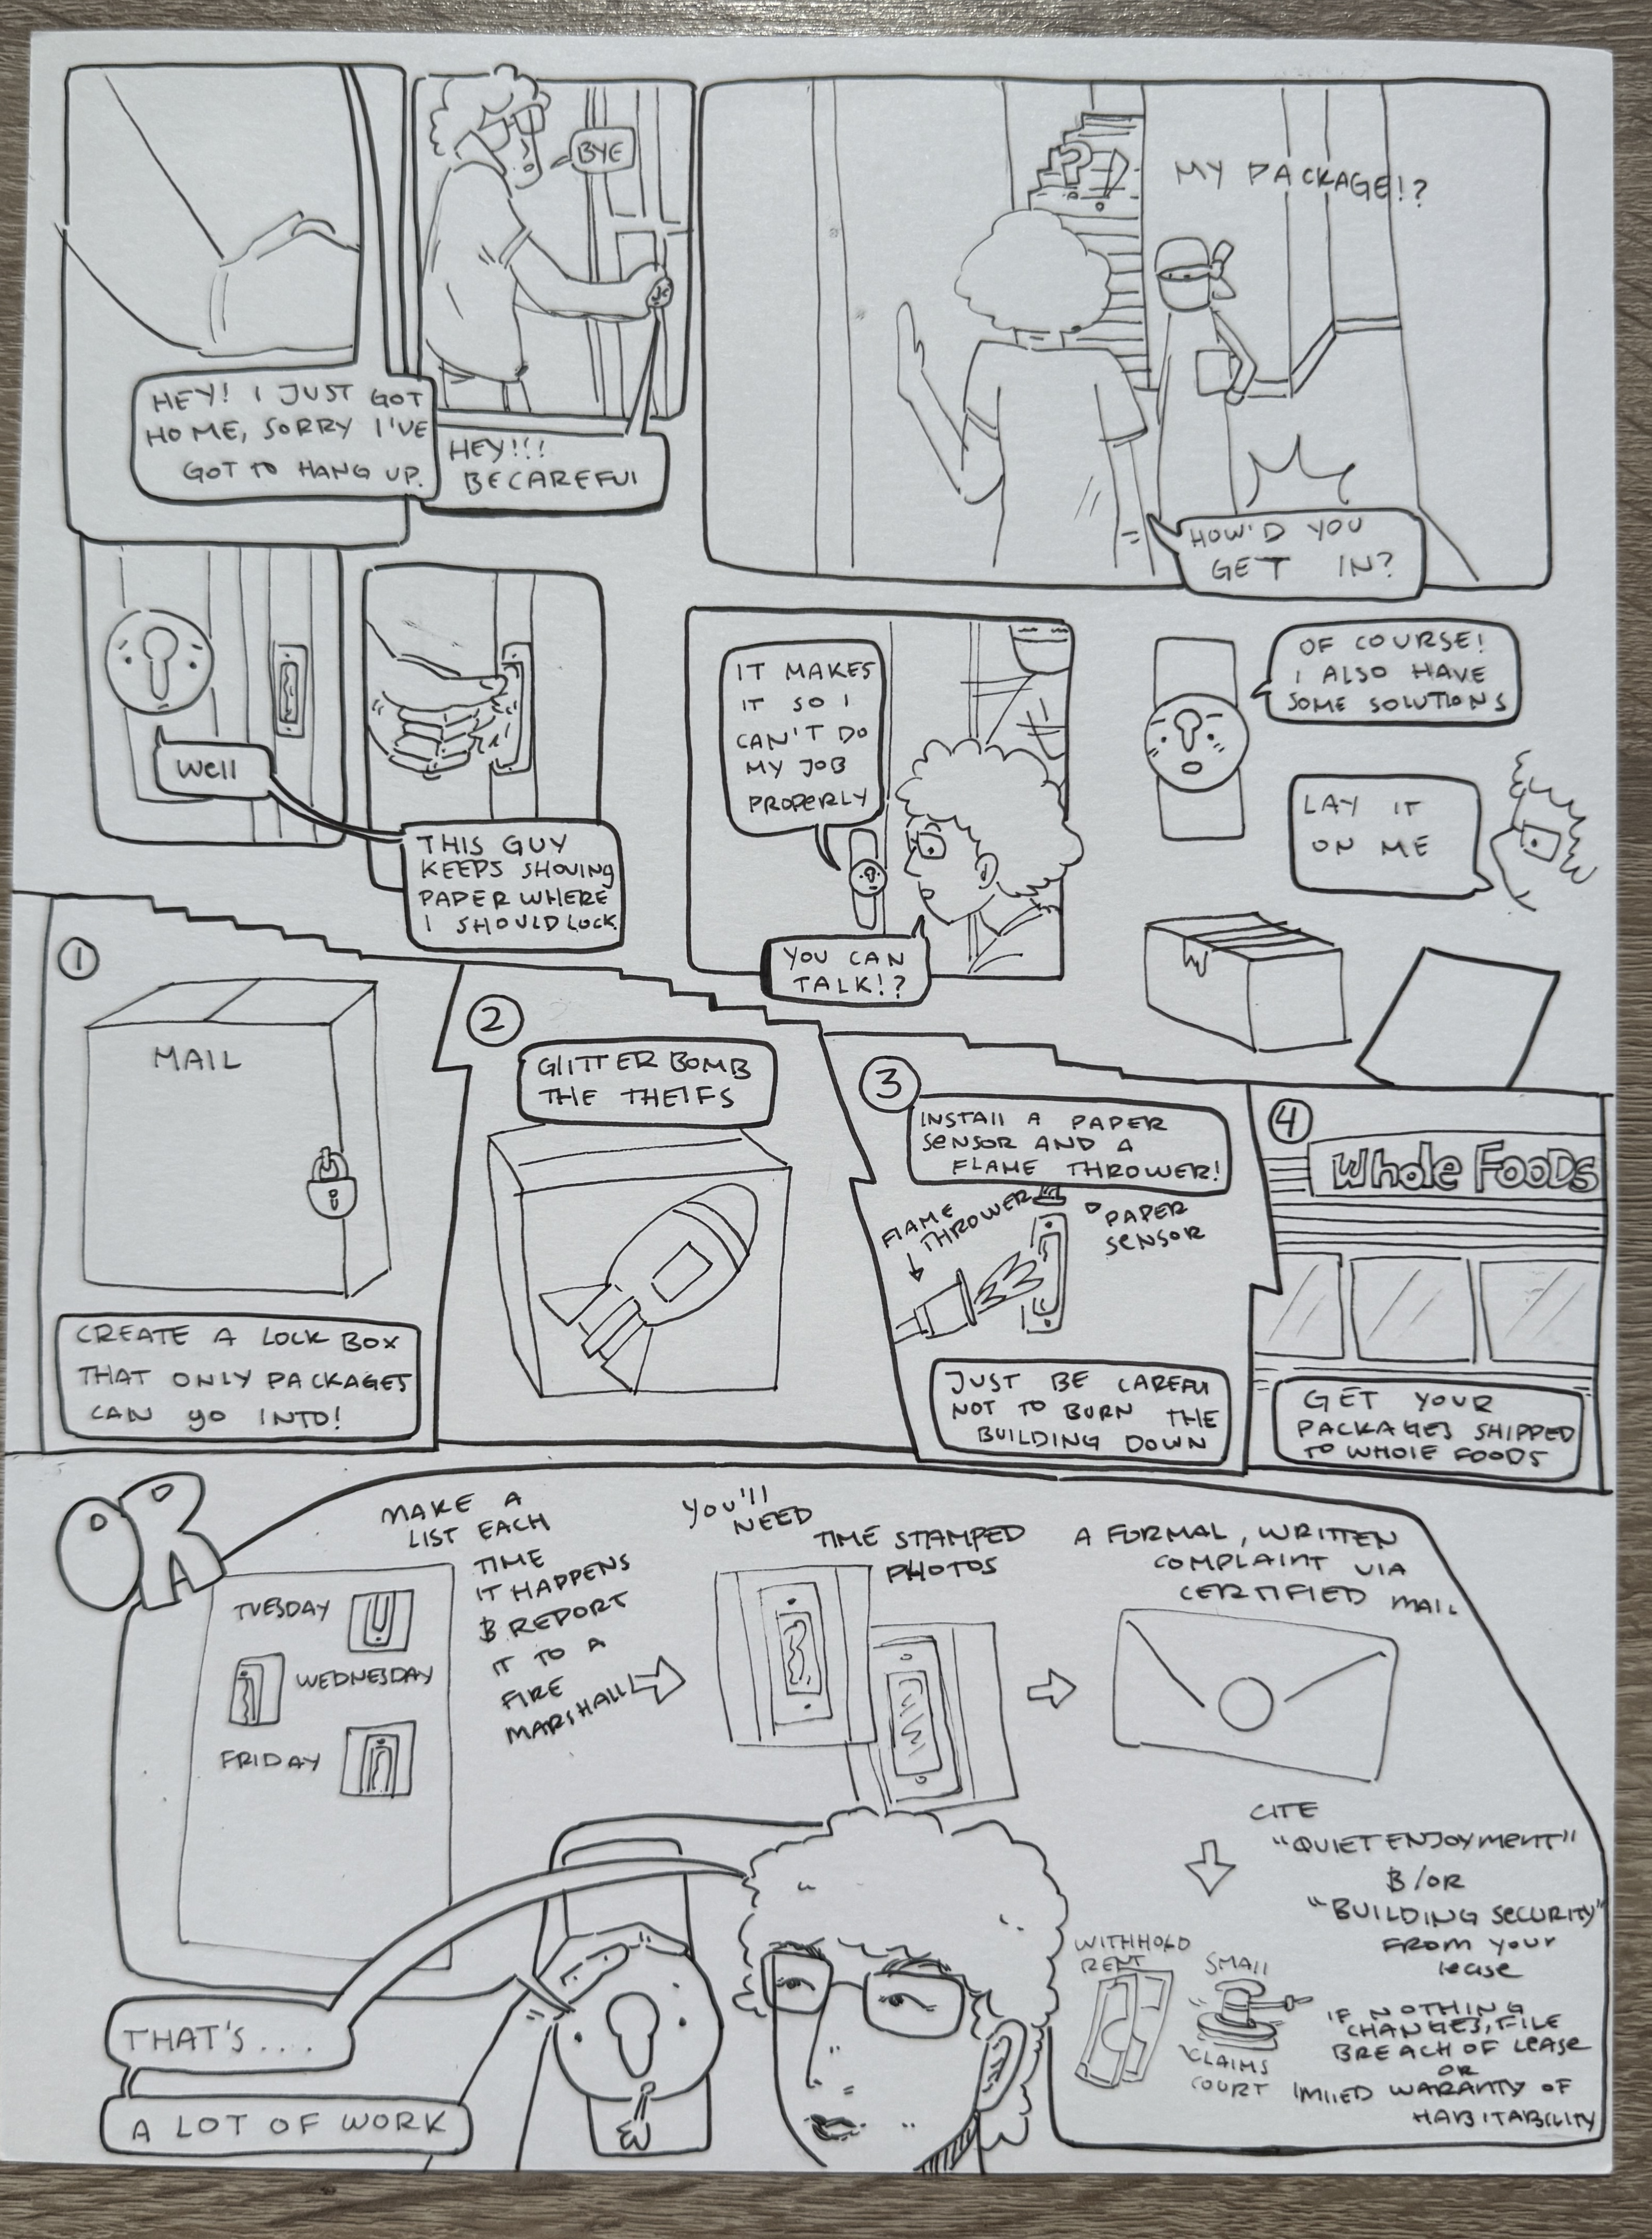 HEY! I JUST GOT
HOME, SORRY I'VE
GOT TO HANG UP.
BYE
HEY!!!
BECAREFUl
?!
MY PACKAGE!?
HOW'D YOU
GET IN?
Well
THIS GUY
KEEPS SHOVING
PAPER WHERE
I SHOULD LOCK
IT MAKES
IT SO I
CAN'T DO
MY JOB
PROPERLY
YOU CAN
TALK!?
OF COURSE!
I ALSO HAVE
SOME SOLUTIONS
LAY IT
ON ME
1
MAIL
CREATE A LOCK BOX
THAT ONLY PACKAGES
CAN go INTO!
2
GLITTER BOMB
THE THEIFS
3
INSTAll A PAPER
SENSOR AND A
FLAME THROWER!
FLAME
THROWER
PAPER
SENSOR
JUST BE CAREFUl
NOT TO BURN THE
BUILDING DOWN
4
Whole FOODS
GET YOUR
PACKAGES SHIPPED
TO WHOlE FOODS
OR
TUESDAY
WEDNESDAY
FRIDAY
MAKE A
LIST EACH
TIME
IT HAPPENS
& REPORT
IT TO A
FIRE
MARSHALL
YOU'll
NEED
TIME STAMPED
PHOTOS
A FORMAL, WRITTEN
COMPLAINT VIA
CERTIFIED MAIL
CITE
"QUIET ENJOYMENT"
&/OR
"BUILDING SECURITY"
FROM YOUR
lease
WITHHOLD
RENT
SMAll
CLAIMS
COURT
IF NOTHING
CHANGES, FILE
BREACH OF LEASE
OR
IMLIED WARANTY OF
HABITABILITY
THAT'S....
A LOT OF WORK